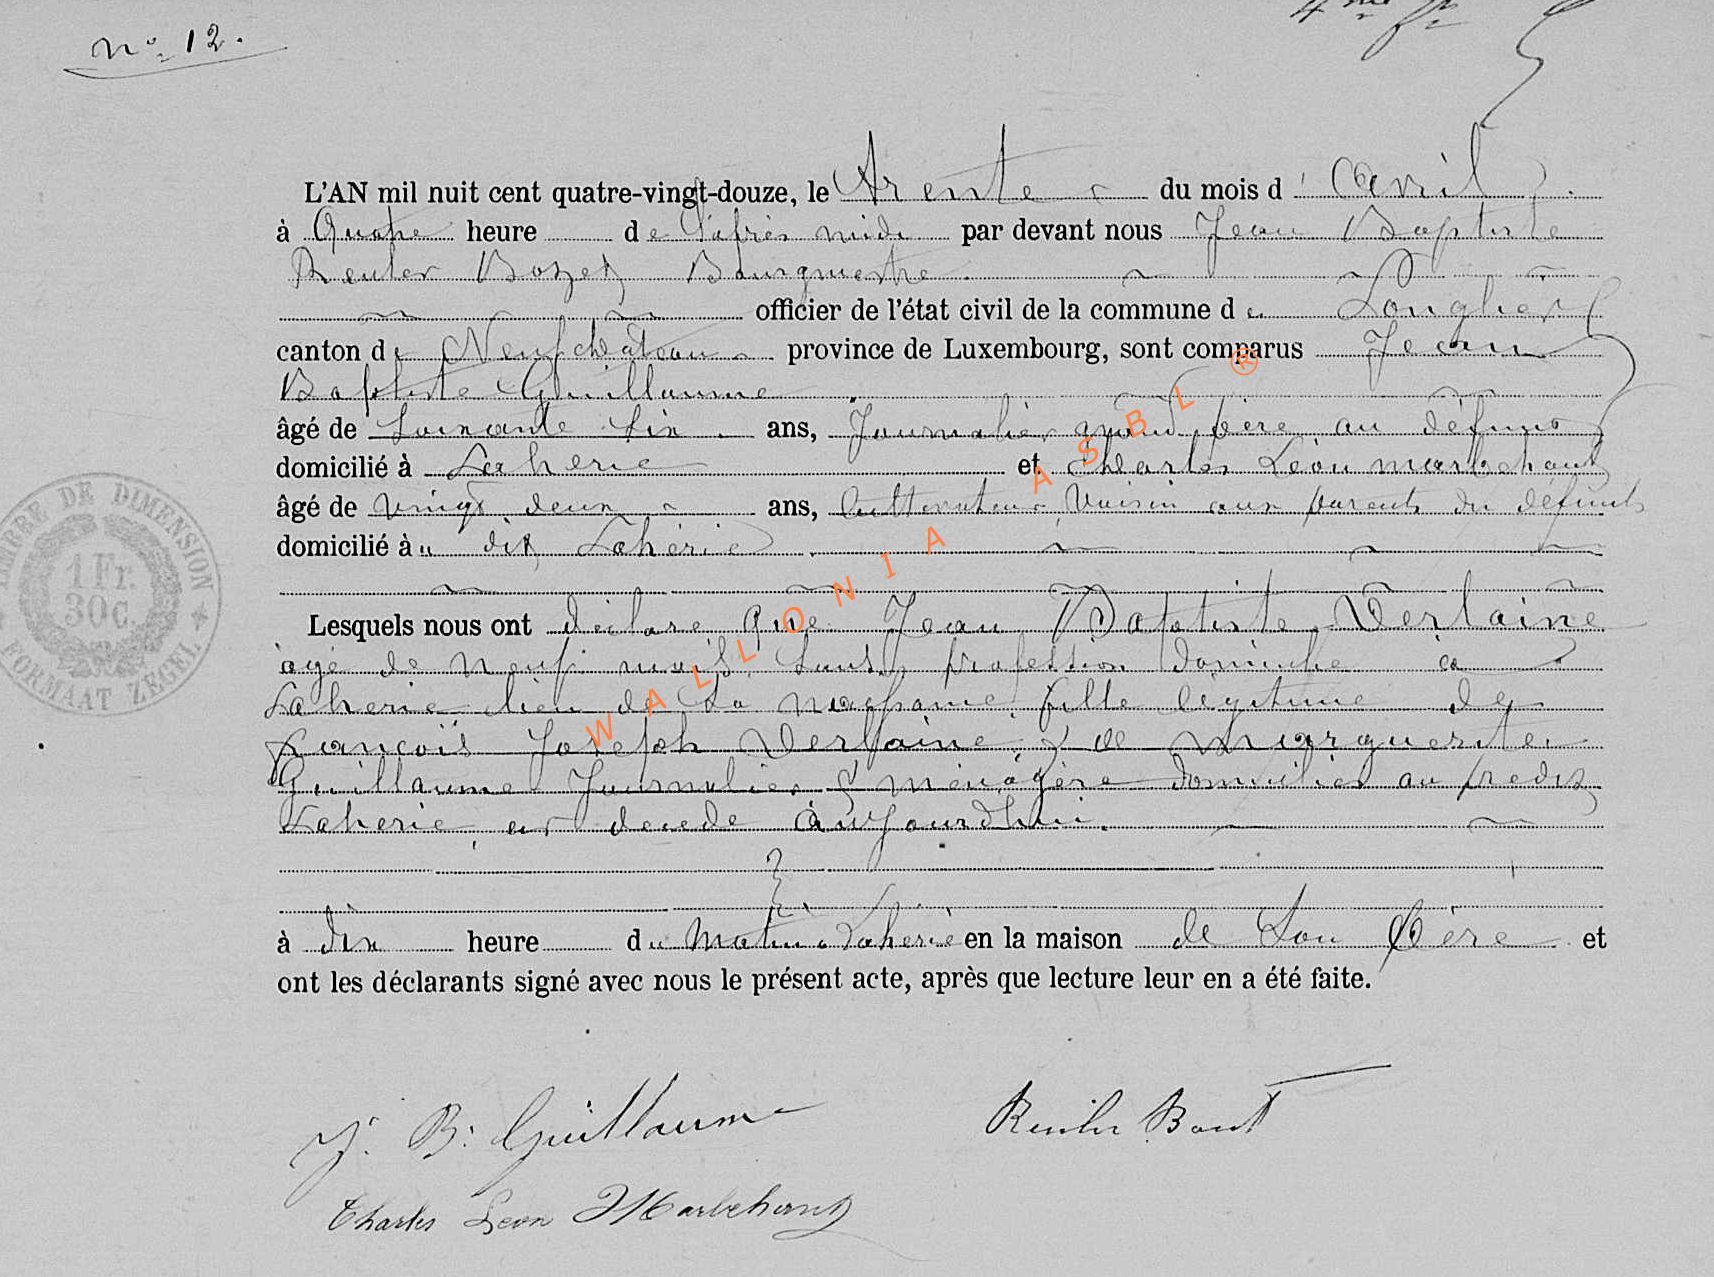 N° 12.
4me
L'AN mil huit cent quatre-vingt-douze, le trente du mois d'Avril
à Quatre heure de l'après midi par devant nous Jean Baptiste
Reuter Bozet Bourgmestre
officier de l'état civil de la commune de Longlier
canton de Neufchâteau province de Luxembourg, sont comparus Jean
Baptiste Guillaume
âgé de Soixante six ans, Journalier grand père au défunt
domicilié à Laherie et Charles Léon Marbehant
âgé de vingt deux ans, Cultivateur Voisin aux parents du défunt
domicilié à u dit Lahérie
Lesquels nous ont déclaré que Jean Baptiste Verlaine
agé de neuf mois sans profession domicilié à
Laherie lieu de Sa naissance fille légitime de
François Joseph Verlaine & de Marguerite
Guillaume Journalier & ménagère domiciliés au predit
Laherie est décédé aujourdhui.
à dix heure du Matin à Laherie en la maison de Son Père et
ont les déclarants signé avec nous le présent acte, après que lecture leur en a été faite.
J. B. Guillaume
Reuter
Charles Léon Marbehant
TIMBRE DE DIMENSION
1 Fr.
30c.
FORMAAT ZEGEL
WALLONIA ASBL ®